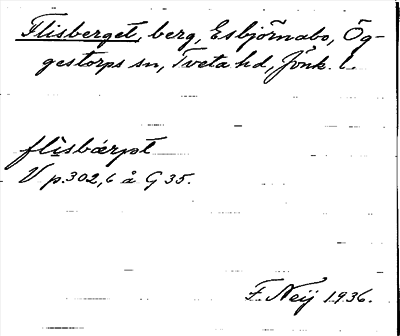 Flisberget, berg, Esbjörnabo, Ög-
gestorps sn, Tveta hd, Jönk. l.
flisbærpt
V p. 302,6 å G 35.
F. Neij 1936.